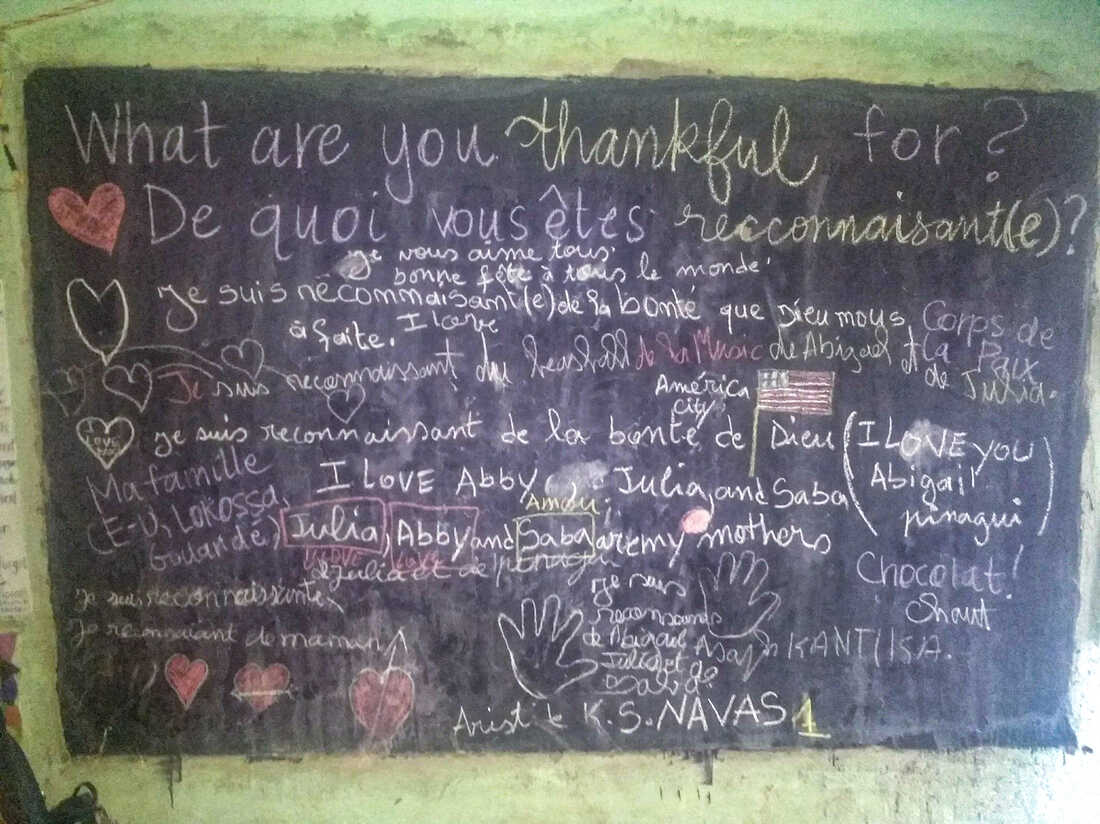 What are you thankful for?
De quoi vous êtes recconnaisant(e)?
Je vous aime tous.
bonne fête à tous le monde!
Je suis réconnaisant(e) de la bonté que Dieu nous
à faite.
I love
Corps de
la Paix
de Julia.
Je suis reconnaissant du baseball de la Music de Abigael et
América
City
I Love you
je suis reconnaissant de la bonté de Dieu
(I LOVE you
Abigail
pinagui)
Ma famille
(E-U, LOKOSSA,
Gouandé)
I LOVE Abby, Julia, and Saba
Amou
Julia, Abby and Saba are my mothers
LOVE
de Julia et de pinagui
Chocolat!
Shout
je suis reconnaissante
Je reconnaiant de maman
je suis
reconsants
de Abigael
Julia et
de
KANTI ISA.
Aristik K.S. NAVAS 1